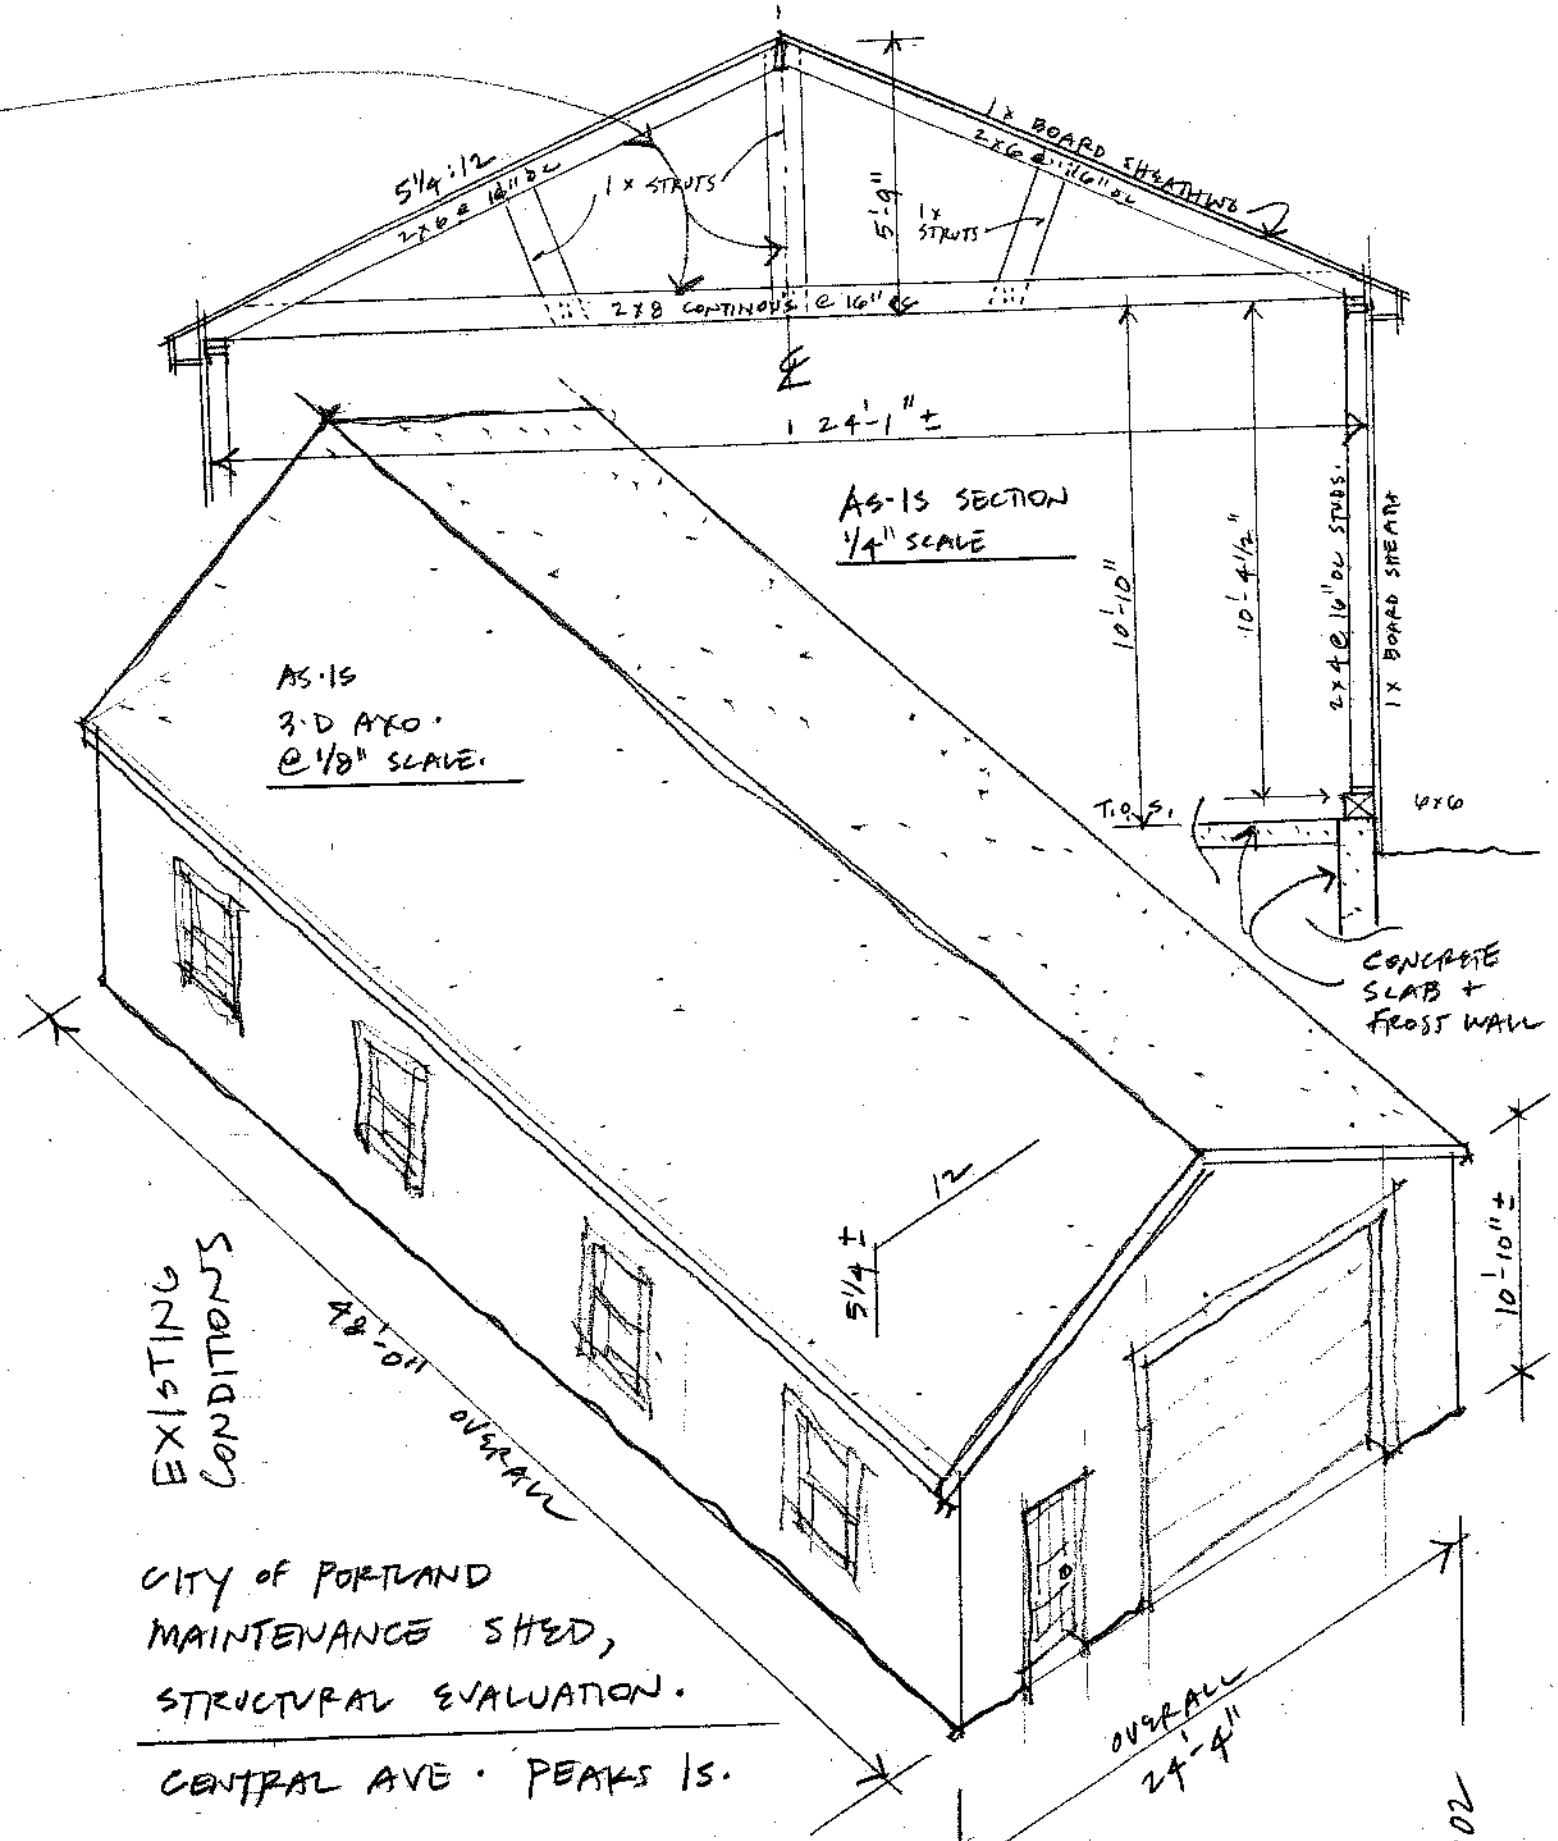 5 1/4 : 12
2x6 @ 16" OC
1x STRUTS
5'-9"
1x
STRUTS
1x BOARD SHEATHING
2x6 @ 16" OC
2x8 CONTINOUS @ 16" OC
℄
24'-1" ±
AS-IS SECTION
1/4" SCALE
10'-10"
10'-4 1/2"
2x4 @ 16" OC STUDS.
1 x BOARD SHEATH
T.O.S.
6x6
CONCRETE
SLAB +
FROST WALL
AS-IS
3-D AXO.
@ 1/8" SCALE.
12
5 1/4 ±
10'-10" ±
48'-0"
OVERALL
EXISTING
CONDITIONS
OVERALL
24'-4"
CITY OF PORTLAND
MAINTENANCE SHED,
STRUCTURAL EVALUATION.
CENTRAL AVE · PEAKS IS.
02